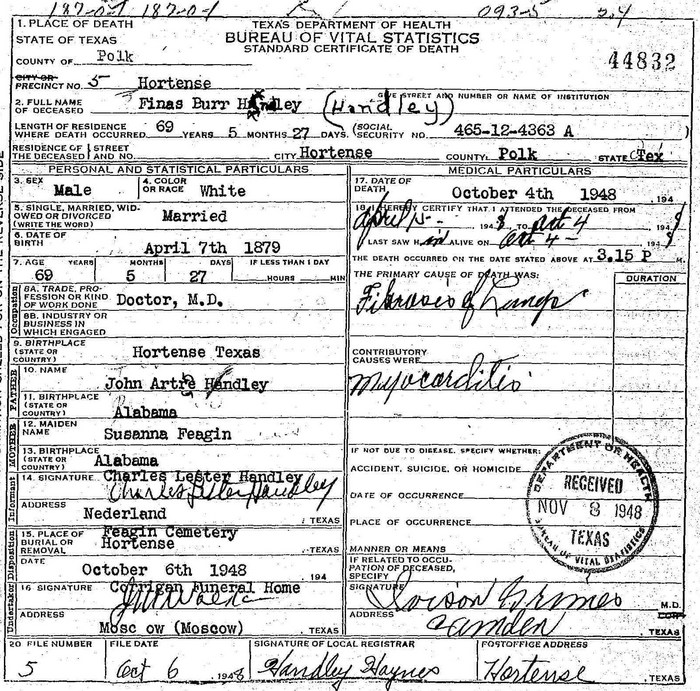 187-0-1 187-0-1 093-5 24
1. PLACE OF DEATH
STATE OF TEXAS
TEXAS DEPARTMENT OF HEALTH
BUREAU OF VITAL STATISTICS
STANDARD CERTIFICATE OF DEATH
44832
COUNTY OF Polk
CITY OR PRECINCT NO. 5 Hortense
GIVE STREET AND NUMBER OR NAME OF INSTITUTION
2. FULL NAME OF DECEASED Finas Burr Handley (Handley)
LENGTH OF RESIDENCE WHERE DEATH OCCURRED 69 YEARS 5 MONTHS 27 DAYS. (SOCIAL SECURITY NO. 465-12-4363 A
RESIDENCE OF THE DECEASED STREET AND NO. CITY Hortense COUNTY: Polk STATE Tex
PERSONAL AND STATISTICAL PARTICULARS
3. SEX Male
4. COLOR OR RACE White
5. SINGLE, MARRIED, WIDOWED OR DIVORCED (WRITE THE WORD) Married
6. DATE OF BIRTH April 7th 1879
7. AGE YEARS MONTHS DAYS IF LESS THAN 1 DAY
69 5 27 HOURS MIN
Occupation
8A. TRADE, PROFESSION OR KIND OF WORK DONE Doctor, M.D.
8B. INDUSTRY OR BUSINESS IN WHICH ENGAGED
9. BIRTHPLACE (STATE OR COUNTRY) Hortense Texas
FATHER
10. NAME John Handley
11. BIRTHPLACE (STATE OR COUNTRY) Alabama
MOTHER
12. MAIDEN NAME Susanna Feagin
13. BIRTHPLACE (STATE OR COUNTRY) Alabama
Informant
14. SIGNATURE Charles Lester Handley
Charles Lester Handley
ADDRESS Nederland, TEXAS
Undertaker Disposition
15. PLACE OF BURIAL OR REMOVAL Feagin Cemetery
Hortense, TEXAS
DATE October 6th 1948, 194
16 SIGNATURE Corrigan Funeral Home
ADDRESS Mosc ow (Moscow), TEXAS
MEDICAL PARTICULARS
17. DATE OF DEATH October 4th 1948, 194
18. I HEREBY CERTIFY THAT I ATTENDED THE DECEASED FROM
April 15- 1948 TO Oct 4 1948
LAST SAW H im ALIVE ON Oct 4- 1948
THE DEATH OCCURRED ON THE DATE STATED ABOVE AT 3.15 P M.
THE PRIMARY CAUSE OF DEATH WAS: DURATION
Fibrosis of Lungs
CONTRIBUTORY CAUSES WERE
Myocarditis
IF NOT DUE TO DISEASE, SPECIFY WHETHER:
ACCIDENT, SUICIDE, OR HOMICIDE
DATE OF OCCURRENCE
PLACE OF OCCURRENCE
MANNER OR MEANS
IF RELATED TO OCCUPATION OF DECEASED, SPECIFY
DEPARTMENT OF HEALTH
RECEIVED
NOV 8 1948
TEXAS
BUREAU OF VITAL STATISTICS
SIGNATURE Grimes M.D.
ADDRESS Camden, TEXAS
20 FILE NUMBER FILE DATE SIGNATURE OF LOCAL REGISTRAR POSTOFFICE ADDRESS
5 Oct 6 1948 Handley Haynes Hortense, TEXAS